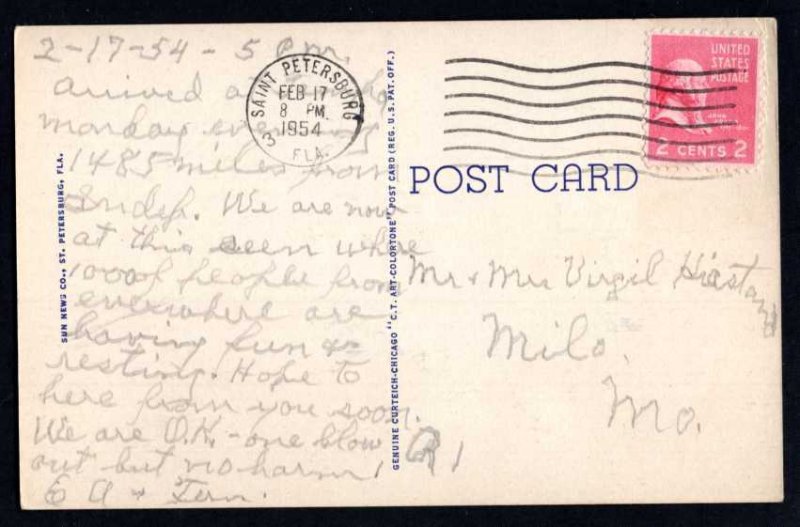 2-17-54 - 5 P.M.
arrived at
monday evening
1485 miles from
Indep. We are now
at this seen where
1000 of people from
everywhere are
having fun &
resting. Hope to
here from you soon.
We are O.K. - one blow
out but no harm!
SAINT PETERSBURG
FEB 17
8 PM
1954
3
FLA.
UNITED
STATES
POSTAGE
2 CENTS 2
POST CARD
Mr + Mrs Virgil Hiestand
Milo.
Mo.
R 1
SUN NEWS CO., ST. PETERSBURG, FLA.
GENUINE CURTEICH-CHICAGO "C.T. ART-COLORTONE" POST CARD (REG. U.S. PAT. OFF.)